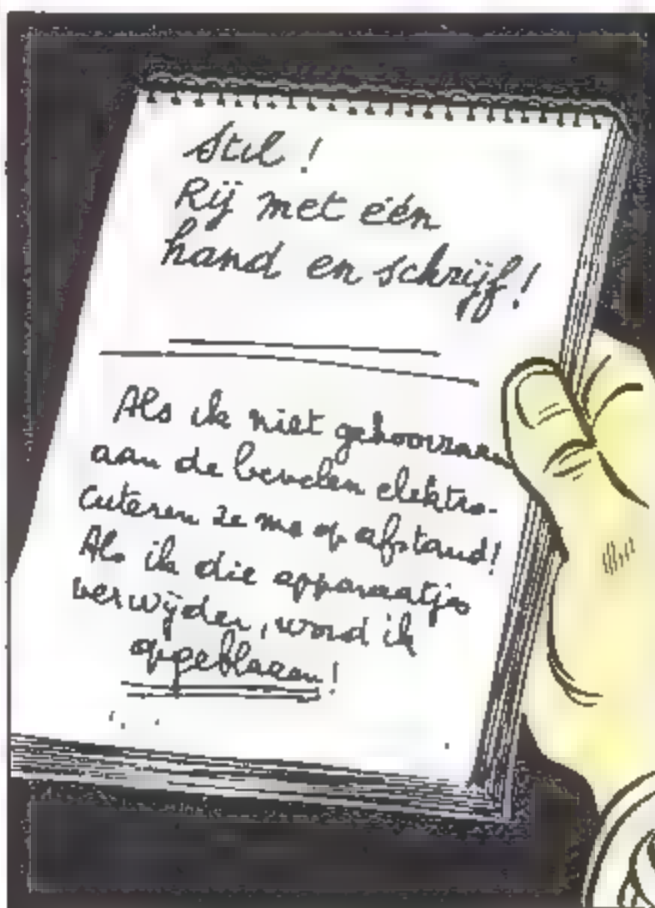 Stil!
Rij met één
hand en schrijf!
Als ik niet gehoorzaam
aan de bevelen elektro-
cuteren ze me op afstand!
Als ik die apparaatjes
verwijder, word ik
opgeblazen!